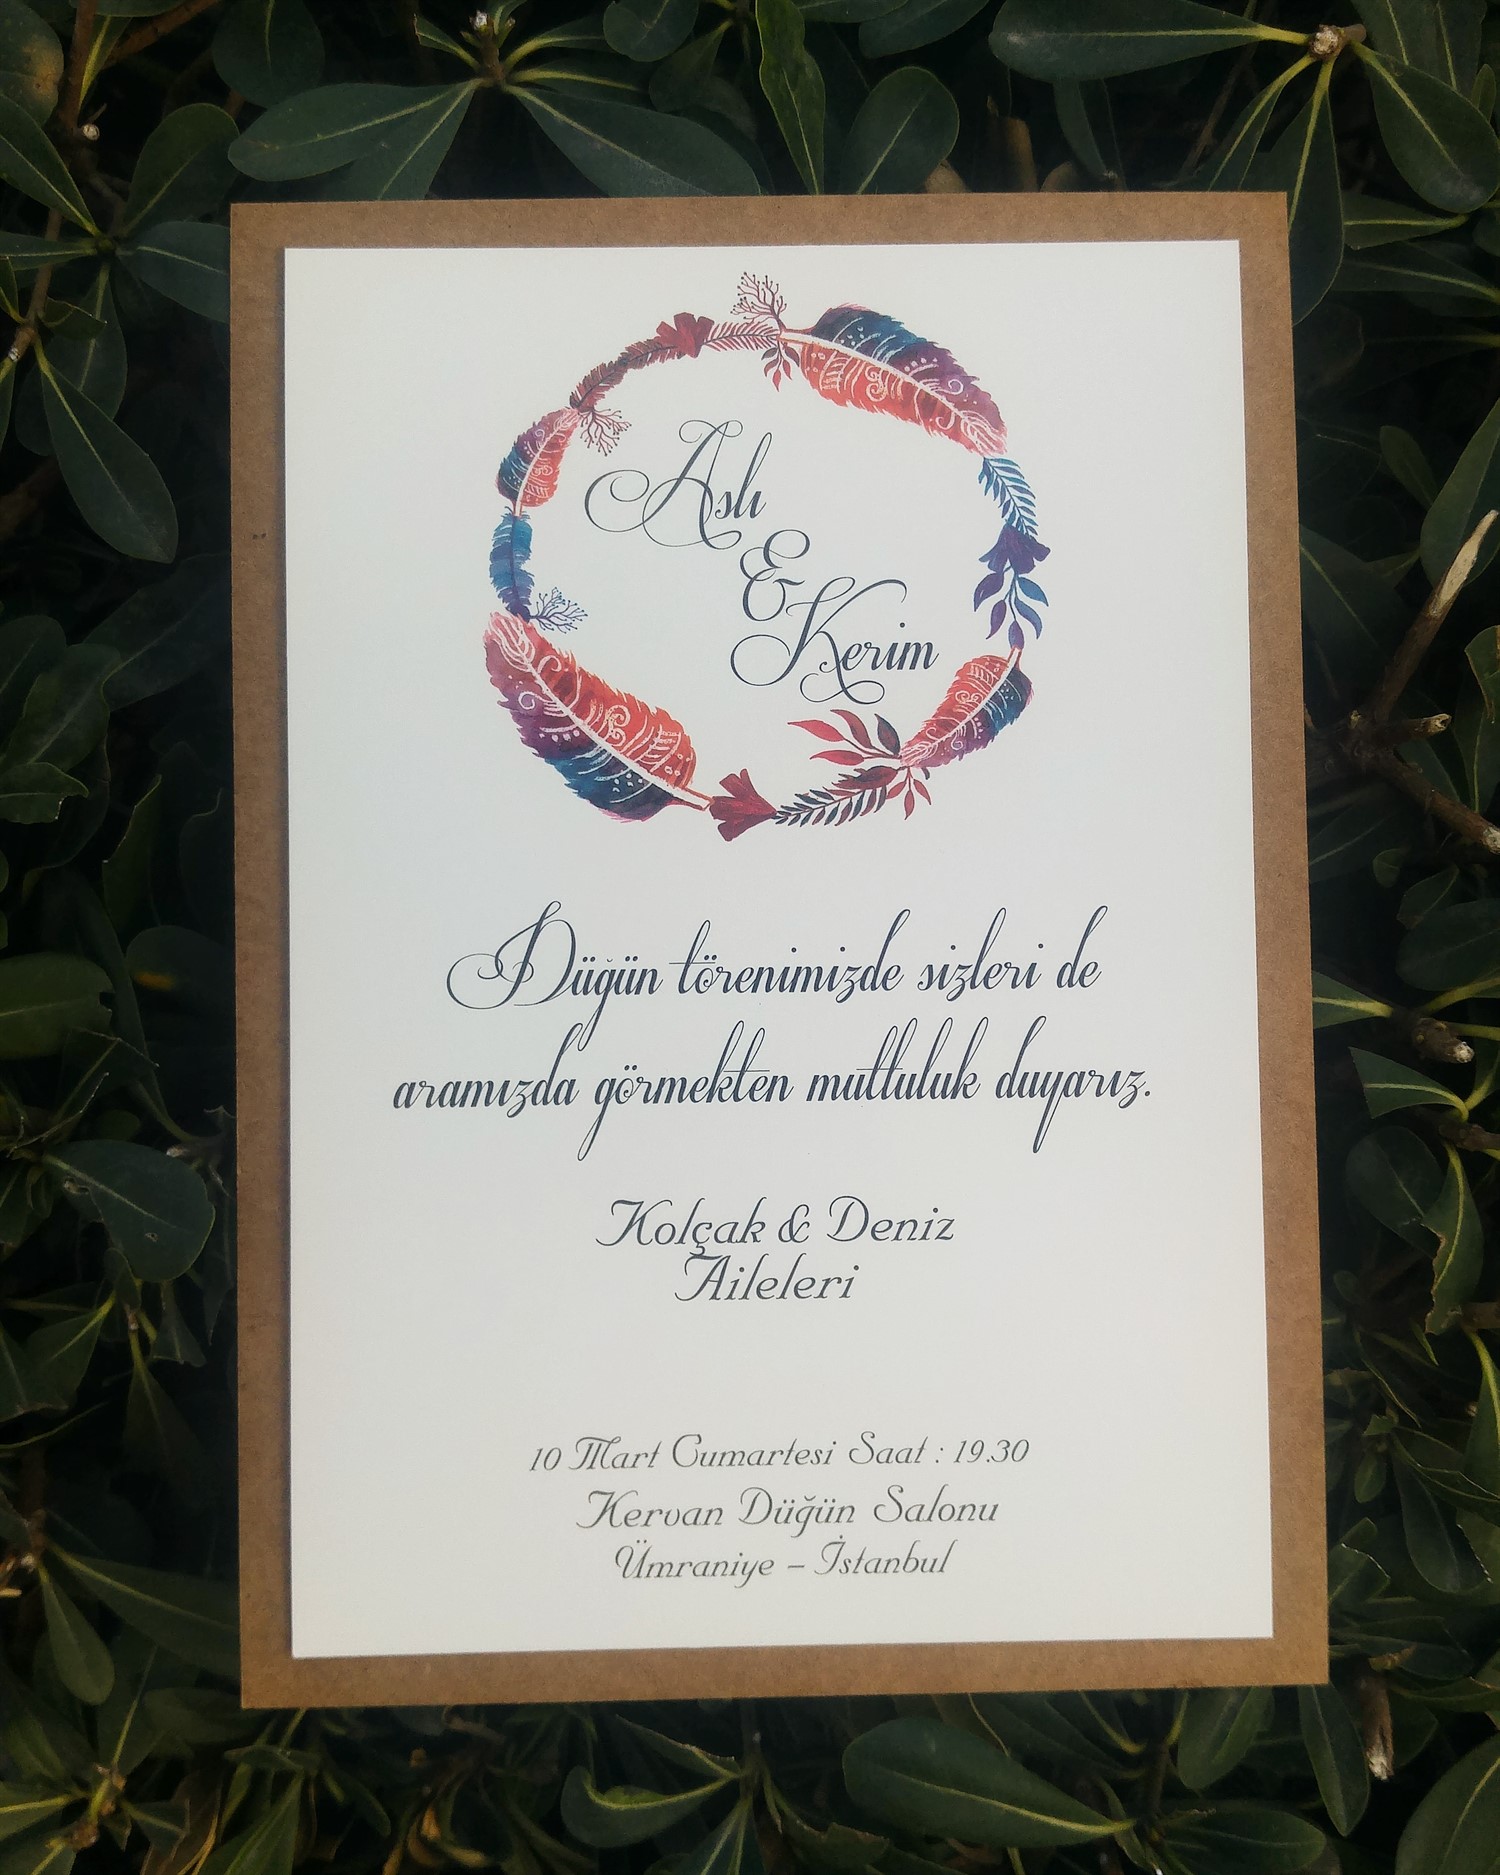 Aslı
&
Kerim
Düğün törenimizde sizleri de
aramızda görmekten mutluluk duyarız.
Kolçak & Deniz
Aileleri
10 Mart Cumartesi Saat : 19.30
Kervan Düğün Salonu
Ümraniye – İstanbul